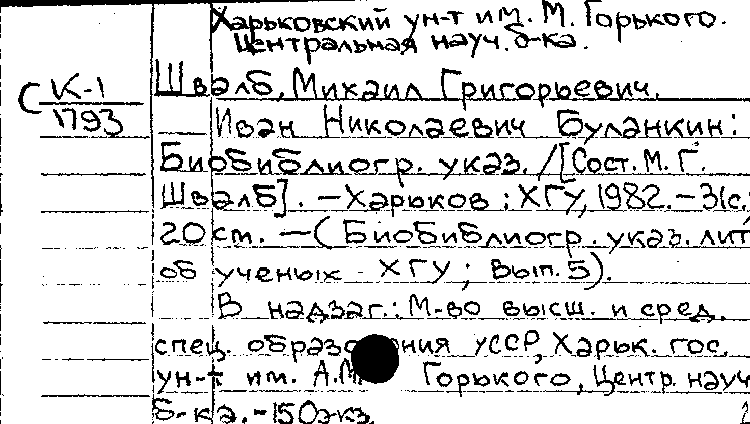 Харьковский ун-т им. М. Горького.
Центральная науч. б-ка.
С К-1
1793
Швалб, Михаил Григорьевич.
Иван Николаевич Буланкин:
Биобиблиогр. указ. / [Сост. М. Г.
Швалб]. — Харьков : ХГУ, 1982. — 31с.;
20 см. — (Биобиблиогр. указ. лит
об ученых ХГУ ; Вып. 5).
В надзаг.: М-во высш. и сред.
спец. образо ния УССР, Харьк. гос.
ун-т им. А.М. Горького, Центр. науч
б-ка. - 150экз.